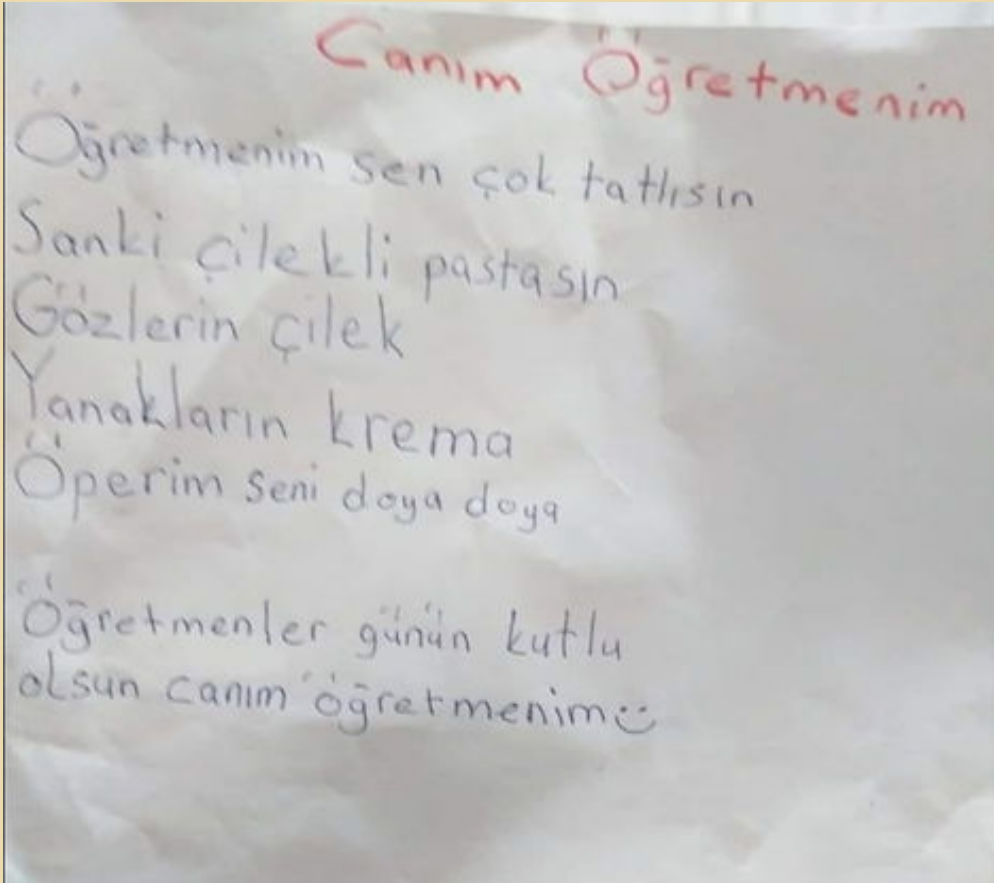 Canım Öğretmenim
Öğretmenim sen çok tatlısın
Sanki çilekli pastasın
Gözlerin çilek
Yanakların krema
Öperim seni doya doya
Öğretmenler günün kutlu
olsun canım öğretmenim